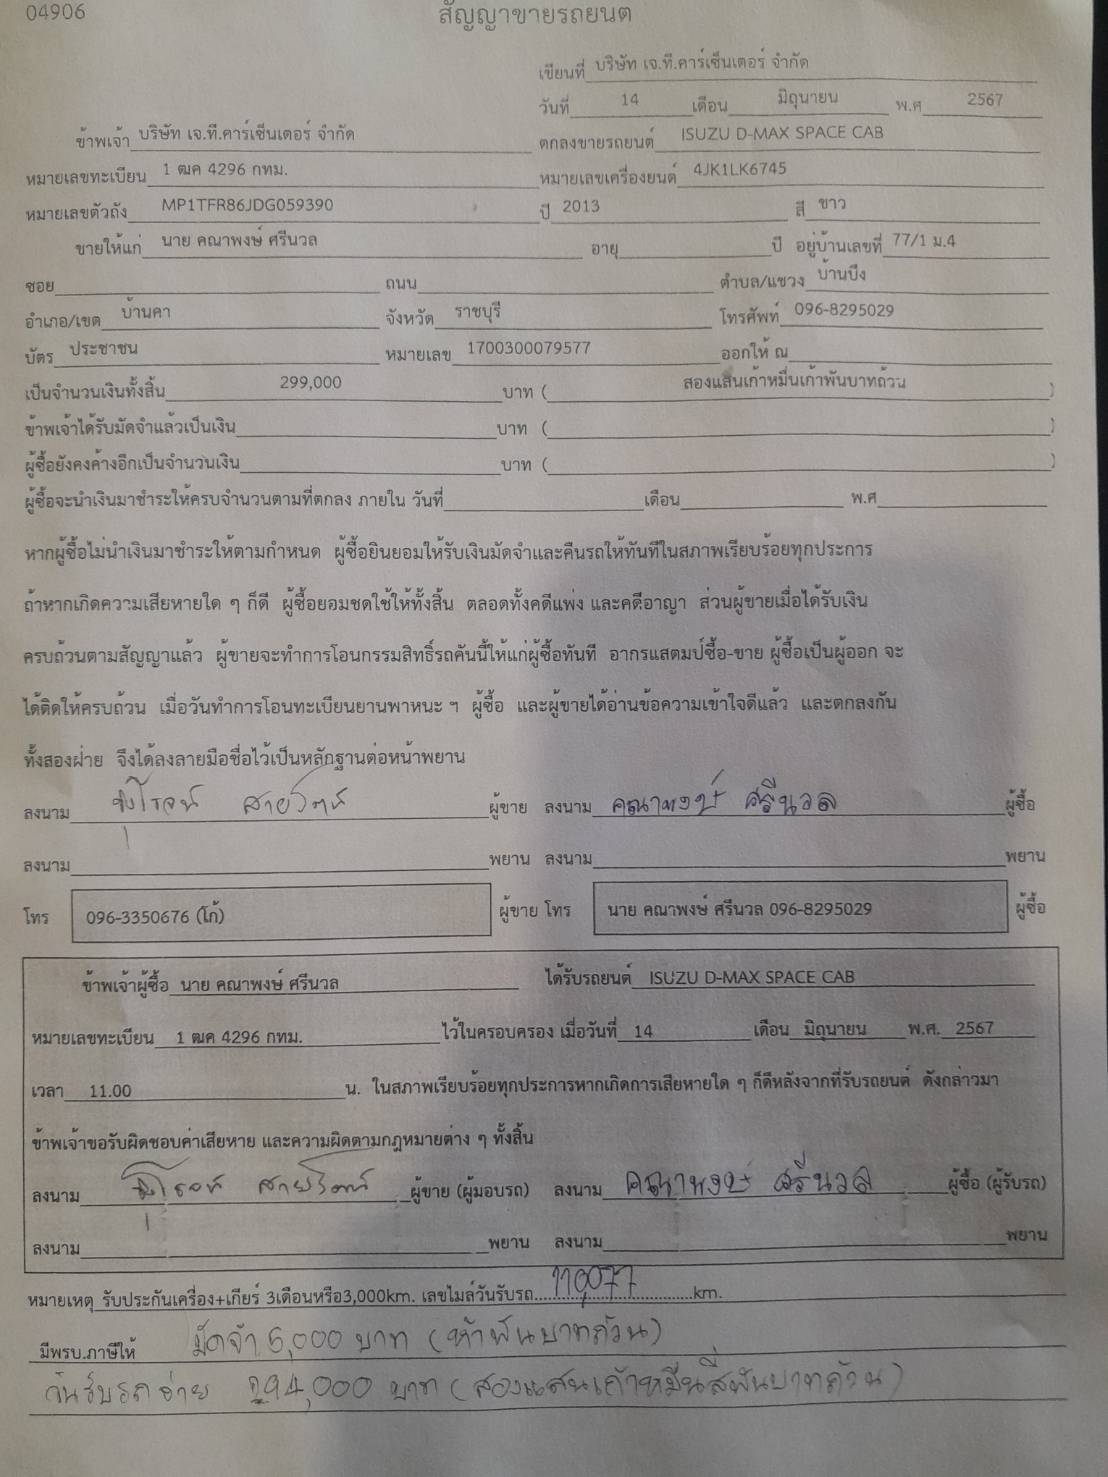 04906
สัญญาขายรถยนต์
เขียนที่ บริษัท เจ.ที.คาร์เซ็นเตอร์ จำกัด
วันที่ 14 เดือน มิถุนายน พ.ศ 2567
ข้าพเจ้า บริษัท เจ.ที.คาร์เซ็นเตอร์ จำกัด ตกลงขายรถยนต์ ISUZU D-MAX SPACE CAB
หมายเลขทะเบียน 1 ฒค 4296 กทม. หมายเลขเครื่องยนต์ 4JK1LK6745
หมายเลขตัวถัง MP1TFR86JDG059390 ปี 2013 สี ขาว
ขายให้แก่ นาย คณาพงษ์ ศรีนวล อายุ ปี อยู่บ้านเลขที่ 77/1 ม.4
ซอย ถนน ตำบล/แขวง บ้านบึง
อำเภอ/เขต บ้านคา จังหวัด ราชบุรี โทรศัพท์ 096-8295029
บัตร ประชาชน หมายเลข 1700300079577 ออกให้ ณ
เป็นจำนวนเงินทั้งสิ้น 299,000 บาท ( สองแสนเก้าหมื่นเก้าพันบาทถ้วน )
ข้าพเจ้าได้รับมัดจำแล้วเป็นเงิน บาท ( )
ผู้ซื้อยังคงค้างอีกเป็นจำนวนเงิน บาท ( )
ผู้ซื้อจะนำเงินมาชำระให้ครบจำนวนตามที่ตกลง ภายใน วันที่ เดือน พ.ศ
หากผู้ซื้อไม่นำเงินมาชำระให้ตามกำหนด ผู้ซื้อยินยอมให้รับเงินมัดจำและคืนรถให้ทันทีในสภาพเรียบร้อยทุกประการ
ถ้าหากเกิดความเสียหายใด ๆ ก็ดี ผู้ซื้อยอมชดใช้ให้ทั้งสิ้น ตลอดทั้งคดีแพ่ง และคดีอาญา ส่วนผู้ขายเมื่อได้รับเงิน
ครบถ้วนตามสัญญาแล้ว ผู้ขายจะทำการโอนกรรมสิทธิ์รถคันนี้ให้แก่ผู้ซื้อทันที อากรแสตมป์ซื้อ-ขาย ผู้ซื้อเป็นผู้ออก จะ
ได้ติดให้ครบถ้วน เมื่อวันทำการโอนทะเบียนยานพาหนะ ฯ ผู้ซื้อ และผู้ขายได้อ่านข้อความเข้าใจดีแล้ว และตกลงกัน
ทั้งสองฝ่าย จึงได้ลงลายมือชื่อไว้เป็นหลักฐานต่อหน้าพยาน
ลงนาม ผู้ขาย ลงนาม คณาพงษ์ ศรีนวล ผู้ซื้อ
ลงนาม พยาน ลงนาม พยาน
โทร 096-3350676 (โก้) ผู้ขาย โทร นาย คณาพงษ์ ศรีนวล 096-8295029 ผู้ซื้อ
ข้าพเจ้าผู้ซื้อ นาย คณาพงษ์ ศรีนวล ได้รับรถยนต์ ISUZU D-MAX SPACE CAB
หมายเลขทะเบียน 1 ฒค 4296 กทม. ไว้ในครอบครอง เมื่อวันที่ 14 เดือน มิถุนายน พ.ศ. 2567
เวลา 11.00 น. ในสภาพเรียบร้อยทุกประการหากเกิดการเสียหายใด ๆ ก็ดีหลังจากที่รับรถยนต์ ดังกล่าวมา
ข้าพเจ้าขอรับผิดชอบค่าเสียหาย และความผิดตามกฎหมายต่าง ๆ ทั้งสิ้น
ลงนาม ผู้ขาย (ผู้มอบรถ) ลงนาม คณาพงษ์ ศรีนวล ผู้ซื้อ (ผู้รับรถ)
ลงนาม พยาน ลงนาม พยาน
หมายเหตุ รับประกันเครื่อง+เกียร์ 3เดือนหรือ3,000km. เลขไมล์วันรับรถ 110,077 km.
มีพรบ.ภาษีให้ มัดจำ 5,000 บาท (ห้าพันบาทถ้วน)
วันรับรถจ่าย 294,000 บาท (สองแสนเก้าหมื่นสี่พันบาทถ้วน)